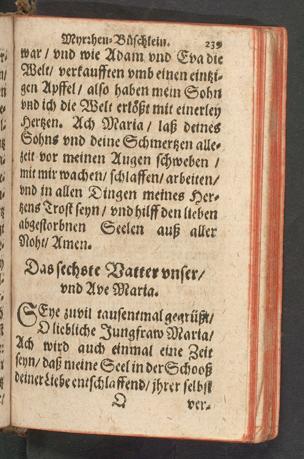 Myrrhen-Büschlein. 239
war / vnd wie Adam vnd Eva die
Welt / verkaufften vmb einen eintzi-
gen Apffel / also haben mein Sohn
vnd ich die Welt erlößt mit einerley
Hertzen. Ach Maria / laß deines
Sohns vnd deine Schmertzen alle-
zeit vor meinen Augen schweben /
mit mir wachen / schlaffen / arbeiten /
vnd in allen Dingen meines Her-
tzens Trost seyn / vnd hilff den lieben
abgestorbnen Seelen auß aller
Noht / Amen.
Das sechste Vatter vnser /
vnd Ave Maria.
SEye zuvil tausentmal gegrüßt /
O liebliche Jungfraw Maria /
Ach wird auch einmal eine Zeit
seyn / daß meine Seel in der Schooß
deiner Liebe entschlaffend / jhrer selbst
Q ver-